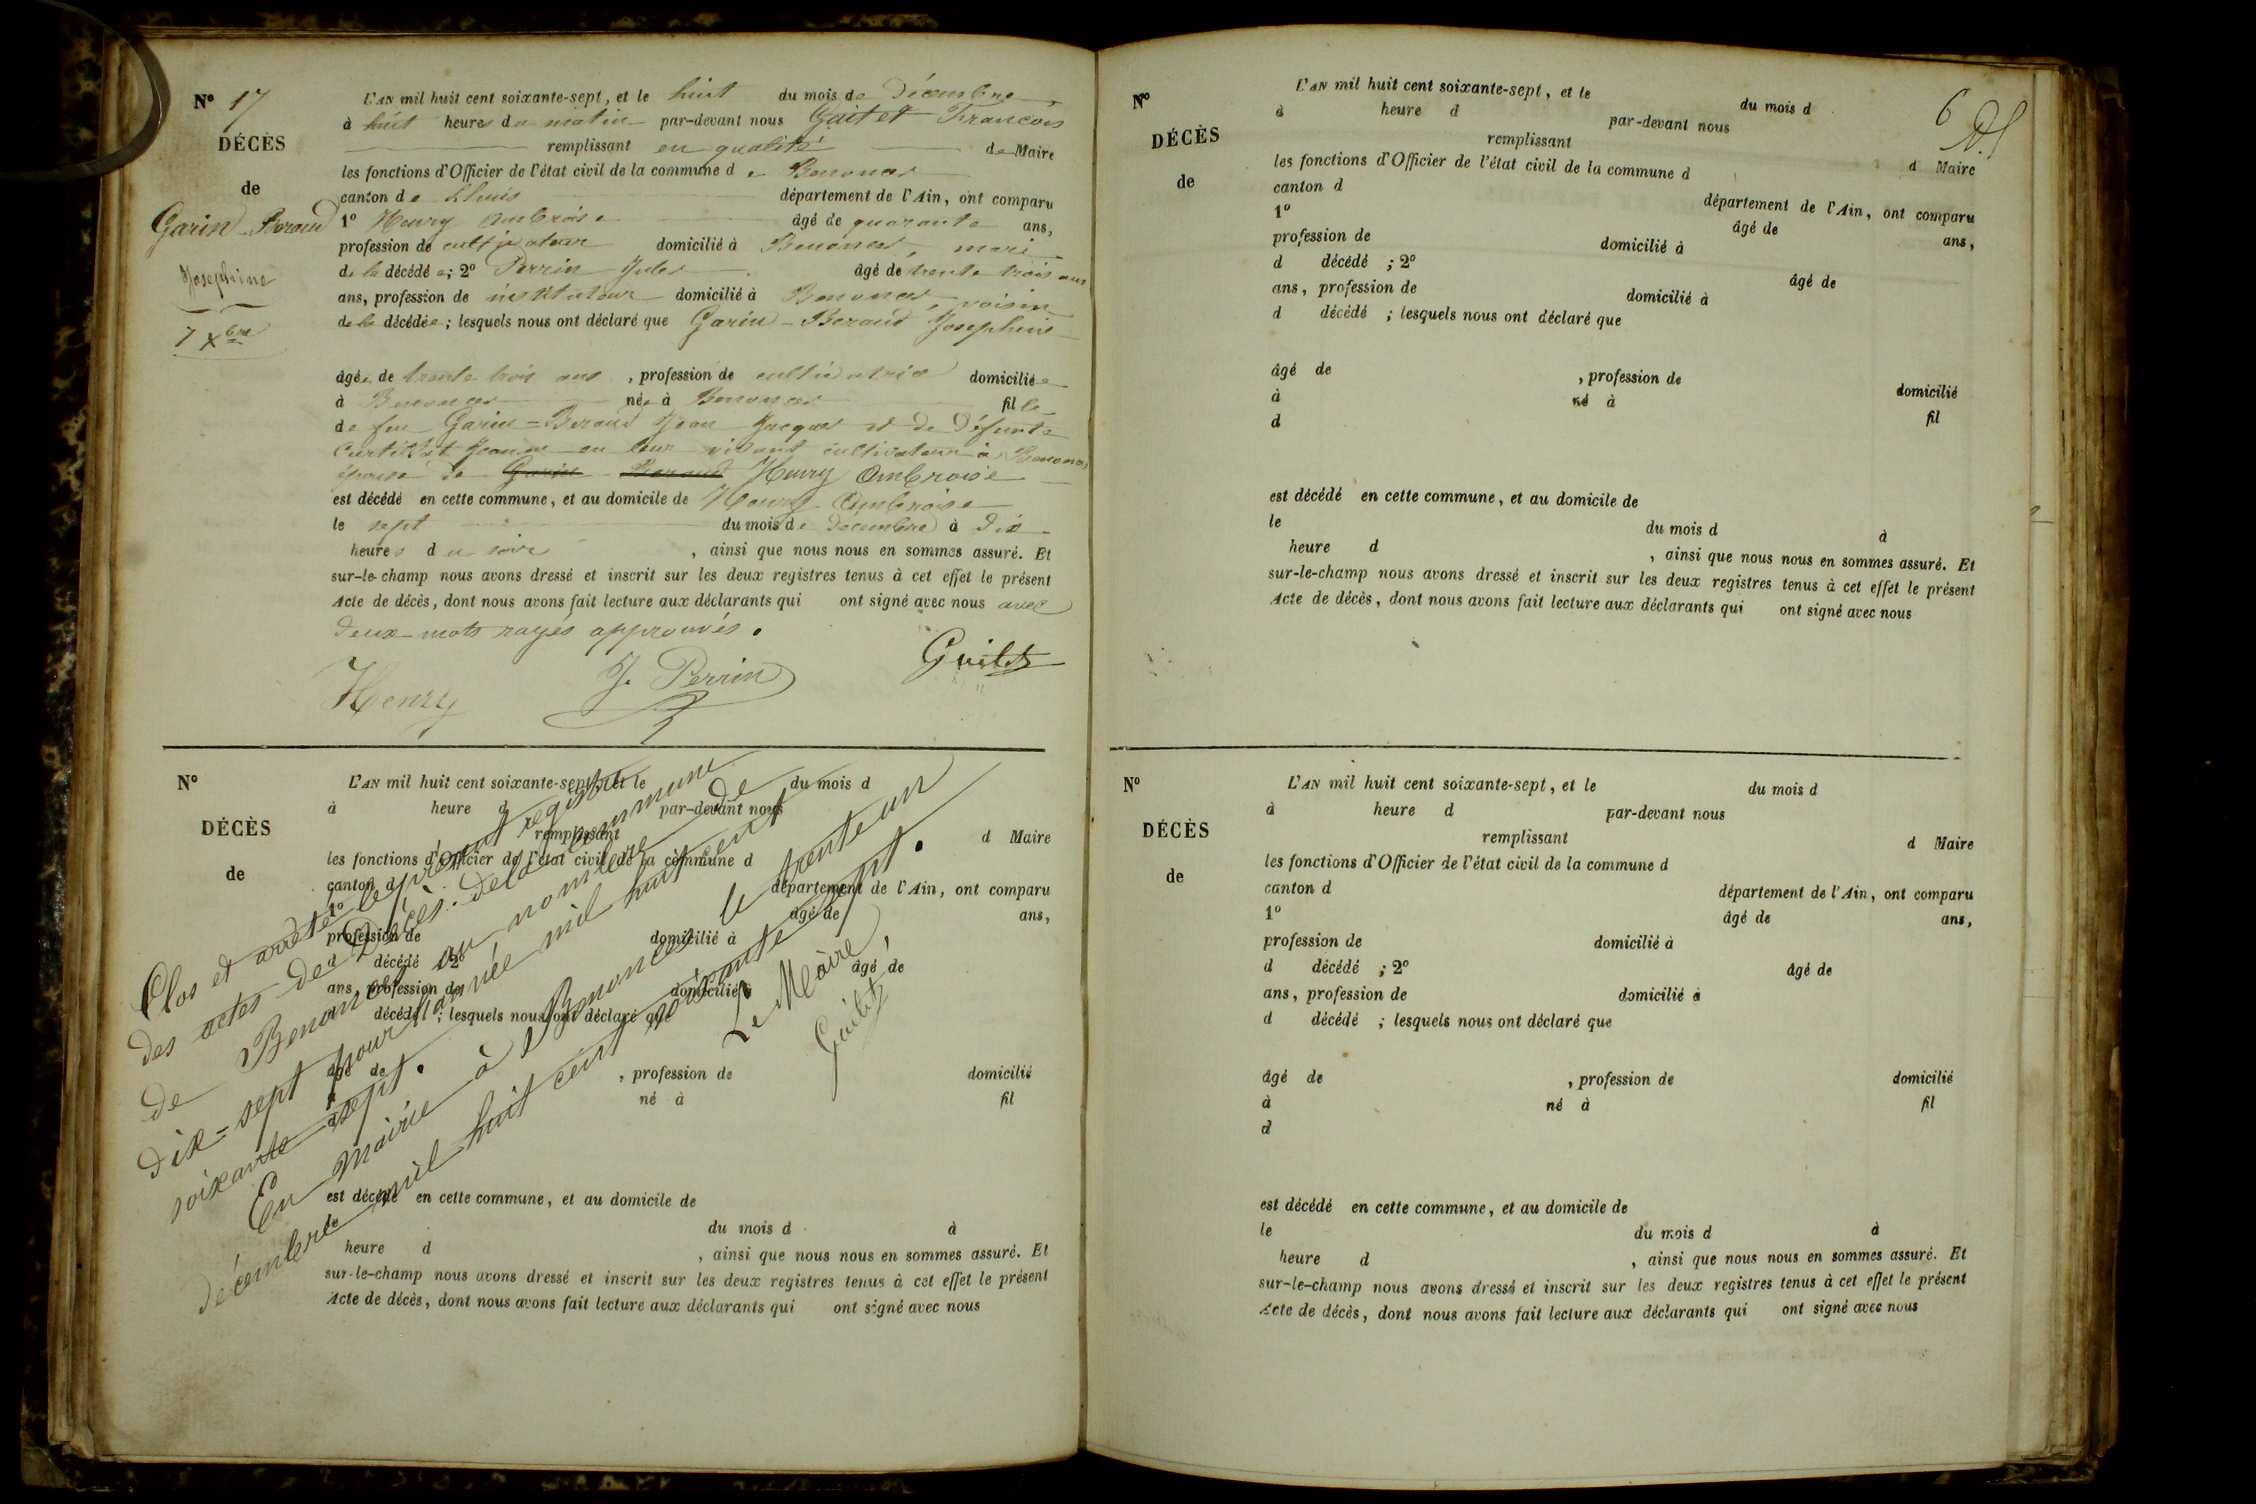 N° 17
DÉCÈS
de
Garin-Beraud
Josephine
7 Xbre
L'AN mil huit cent soixante-sept, et le huit du mois de Décembre
à huit heures du matin par-devant nous Guitet Francois
remplissant en qualité de Maire
les fonctions d'Officier de l'état civil de la commune de Benonces
canton de Lhuis département de l'Ain, ont comparu
1° Henry Ambroise âgé de quarante ans,
profession de cultivateur domicilié à Benonces, mari
de la décédée; 2° Perrin Jules âgé de trente trois ans
ans, profession de instituteur domicilié à Benonces, voisin
de la décédée; lesquels nous ont déclaré que Garin-Beraud Josephine
âgée de trente trois ans, profession de cultivatrice domiciliée
à Benonces née à Benonces fille
de feu Garin=Beraud Jean Jacques et de Défunte
Jeanne en leur vivant cultivateurs à Benonces
épouse de Garin Beraud Henry Ambroise
est décédé en cette commune, et au domicile de Henry Ambroise
le sept du mois de Décembre à dix
heures du soir, ainsi que nous nous en sommes assuré. Et
sur-le-champ nous avons dressé et inscrit sur les deux registres tenus à cet effet le présent
Acte de décès, dont nous avons fait lecture aux déclarants qui ont signé avec nous avec
deux mots rayés approuvés.
Henry J. Perrin Guitet
N°
DÉCÈS
de
L'AN mil huit cent soixante-sept, et le du mois d
à heure d par-devant nous
remplissant d Maire
les fonctions d'Officier de l'état civil de la commune d
canton d département de l'Ain, ont comparu
1° âgé de ans,
profession de domicilié à
d décédé ; 2° âgé de
ans, profession de domicilié à
d décédé ; lesquels nous ont déclaré que
âgé de , profession de domicilié
à né à fil
d
est décédé en cette commune, et au domicile de
le du mois d à
heure d , ainsi que nous nous en sommes assuré. Et
sur-le-champ nous avons dressé et inscrit sur les deux registres tenus à cet effet le présent
Acte de décès, dont nous avons fait lecture aux déclarants qui ont signé avec nous
Clos et arrêté le présent registre
des actes de Décès de la commune
de Benonces au nombre de
dix-sept pour l'année mil huit cent
soixante-sept.
En mairie à Benonces le trente un
décembre mil huit cent soixante sept.
Le Maire,
Guitet
6
N°
DÉCÈS
de
L'AN mil huit cent soixante-sept, et le du mois d
à heure d par-devant nous
remplissant d Maire
les fonctions d'Officier de l'état civil de la commune d
canton d département de l'Ain, ont comparu
1° âgé de ans,
profession de domicilié à
d décédé ; 2° âgé de
ans, profession de domicilié à
d décédé ; lesquels nous ont déclaré que
âgé de , profession de domicilié
à né à fil
d
est décédé en cette commune, et au domicile de
le du mois d à
heure d , ainsi que nous nous en sommes assuré. Et
sur-le-champ nous avons dressé et inscrit sur les deux registres tenus à cet effet le présent
Acte de décès, dont nous avons fait lecture aux déclarants qui ont signé avec nous
N°
DÉCÈS
de
L'AN mil huit cent soixante-sept, et le du mois d
à heure d par-devant nous
remplissant d Maire
les fonctions d'Officier de l'état civil de la commune d
canton d département de l'Ain, ont comparu
1° âgé de ans,
profession de domicilié à
d décédé ; 2° âgé de
ans, profession de domicilié à
d décédé ; lesquels nous ont déclaré que
âgé de , profession de domicilié
à né à fil
d
est décédé en cette commune, et au domicile de
le du mois d à
heure d , ainsi que nous nous en sommes assuré. Et
sur-le-champ nous avons dressé et inscrit sur les deux registres tenus à cet effet le présent
Acte de décès, dont nous avons fait lecture aux déclarants qui ont signé avec nous